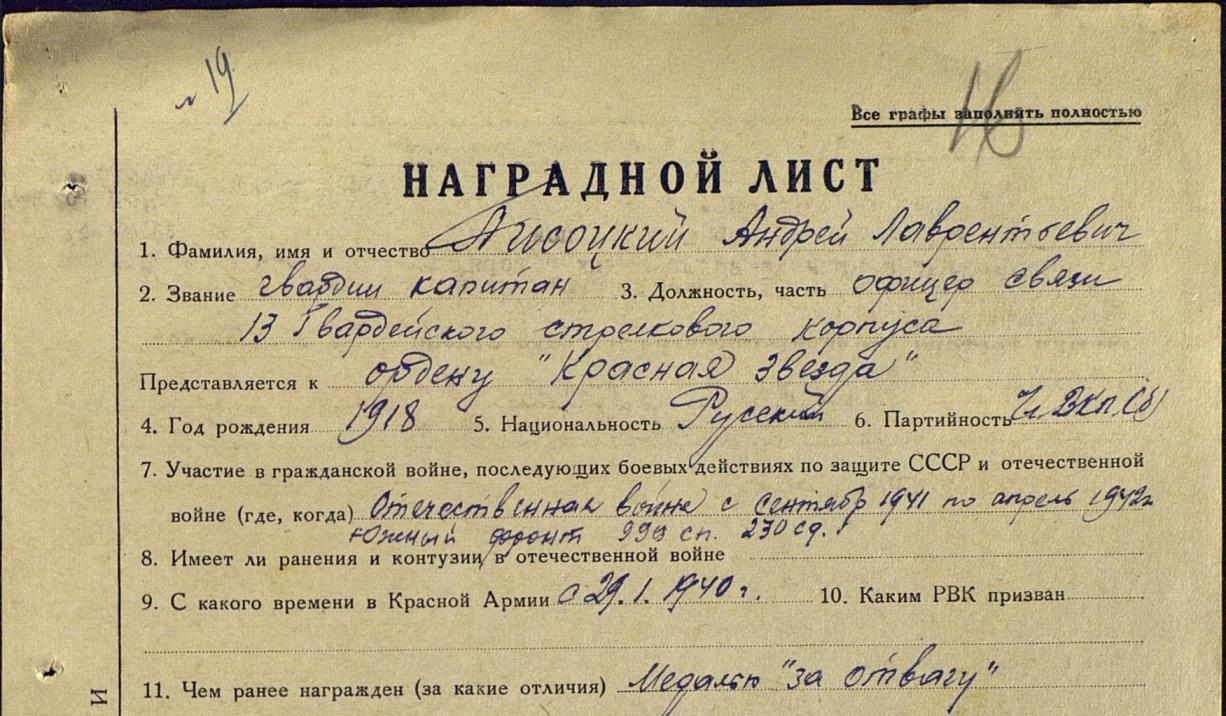 № 19
16
Все графы заполнять полностью
НАГРАДНОЙ ЛИСТ
1. Фамилия, имя и отчество Лисоцкий Андрей Лаврентьевич
2. Звание гвардии капитан 3. Должность, часть офицер связи
13 Гвардейского стрелкового корпуса
Представляется к ордену "Красная Звезда"
4. Год рождения 1918 5. Национальность Русский 6. Партийность Чл. ВКП(б)
7. Участие в гражданской войне, последующих боевых действиях по защите СССР и отечественной
войне (где, когда) Отечественная война с сентябр 1941 по апрель 1942г
Южный фронт 999 сп. 230 сд.
8. Имеет ли ранения и контузии в отечественной войне
9. С какого времени в Красной Армии с 29.1.1940 г. 10. Каким РВК призван
11. Чем ранее награжден (за какие отличия) Медалью "за отвагу"
И